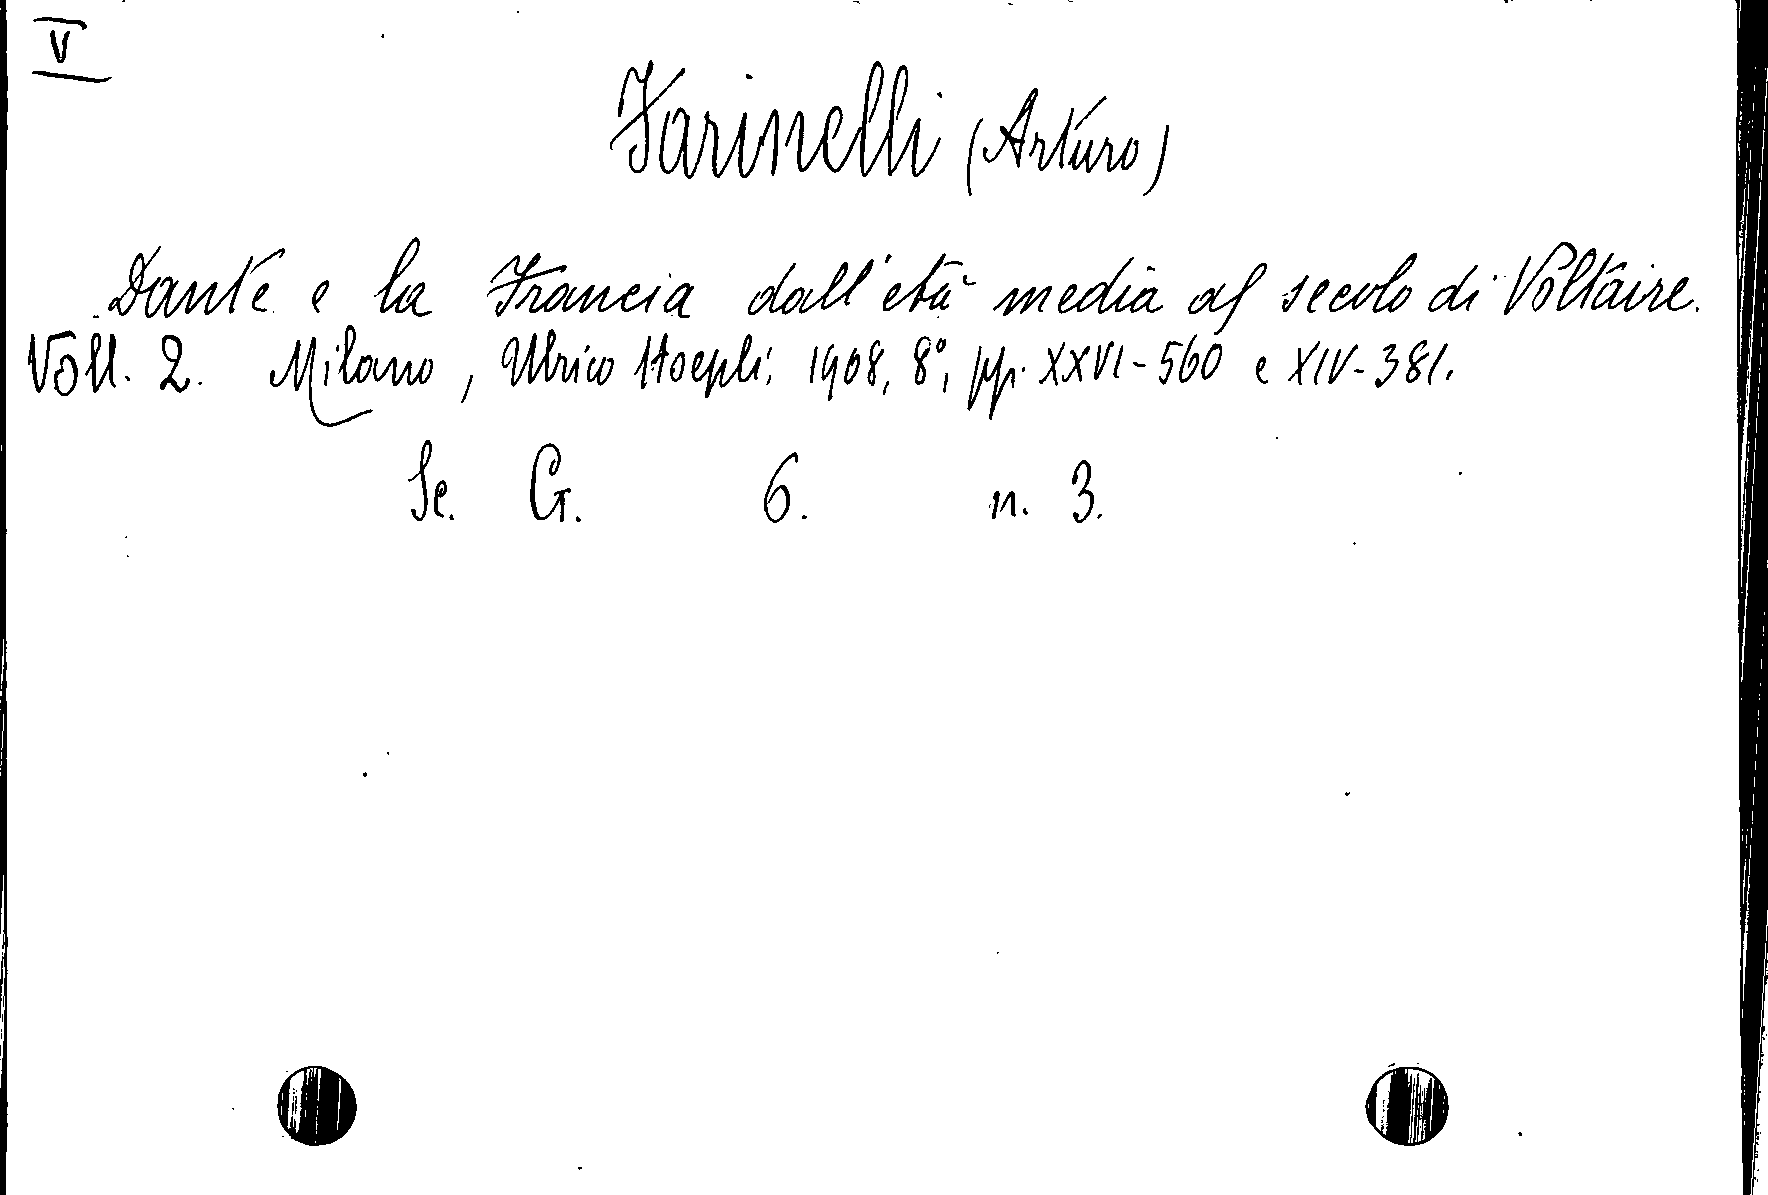 V
Farinelli (Arturo)
Dante e la Francia dall'età media al secolo di Voltaire.
Voll. 2. Milano, Ulrico Hoepli, 1908, 8°, pp. XXVI-560 e XIV-381.
Sc. G. 6. n. 3.